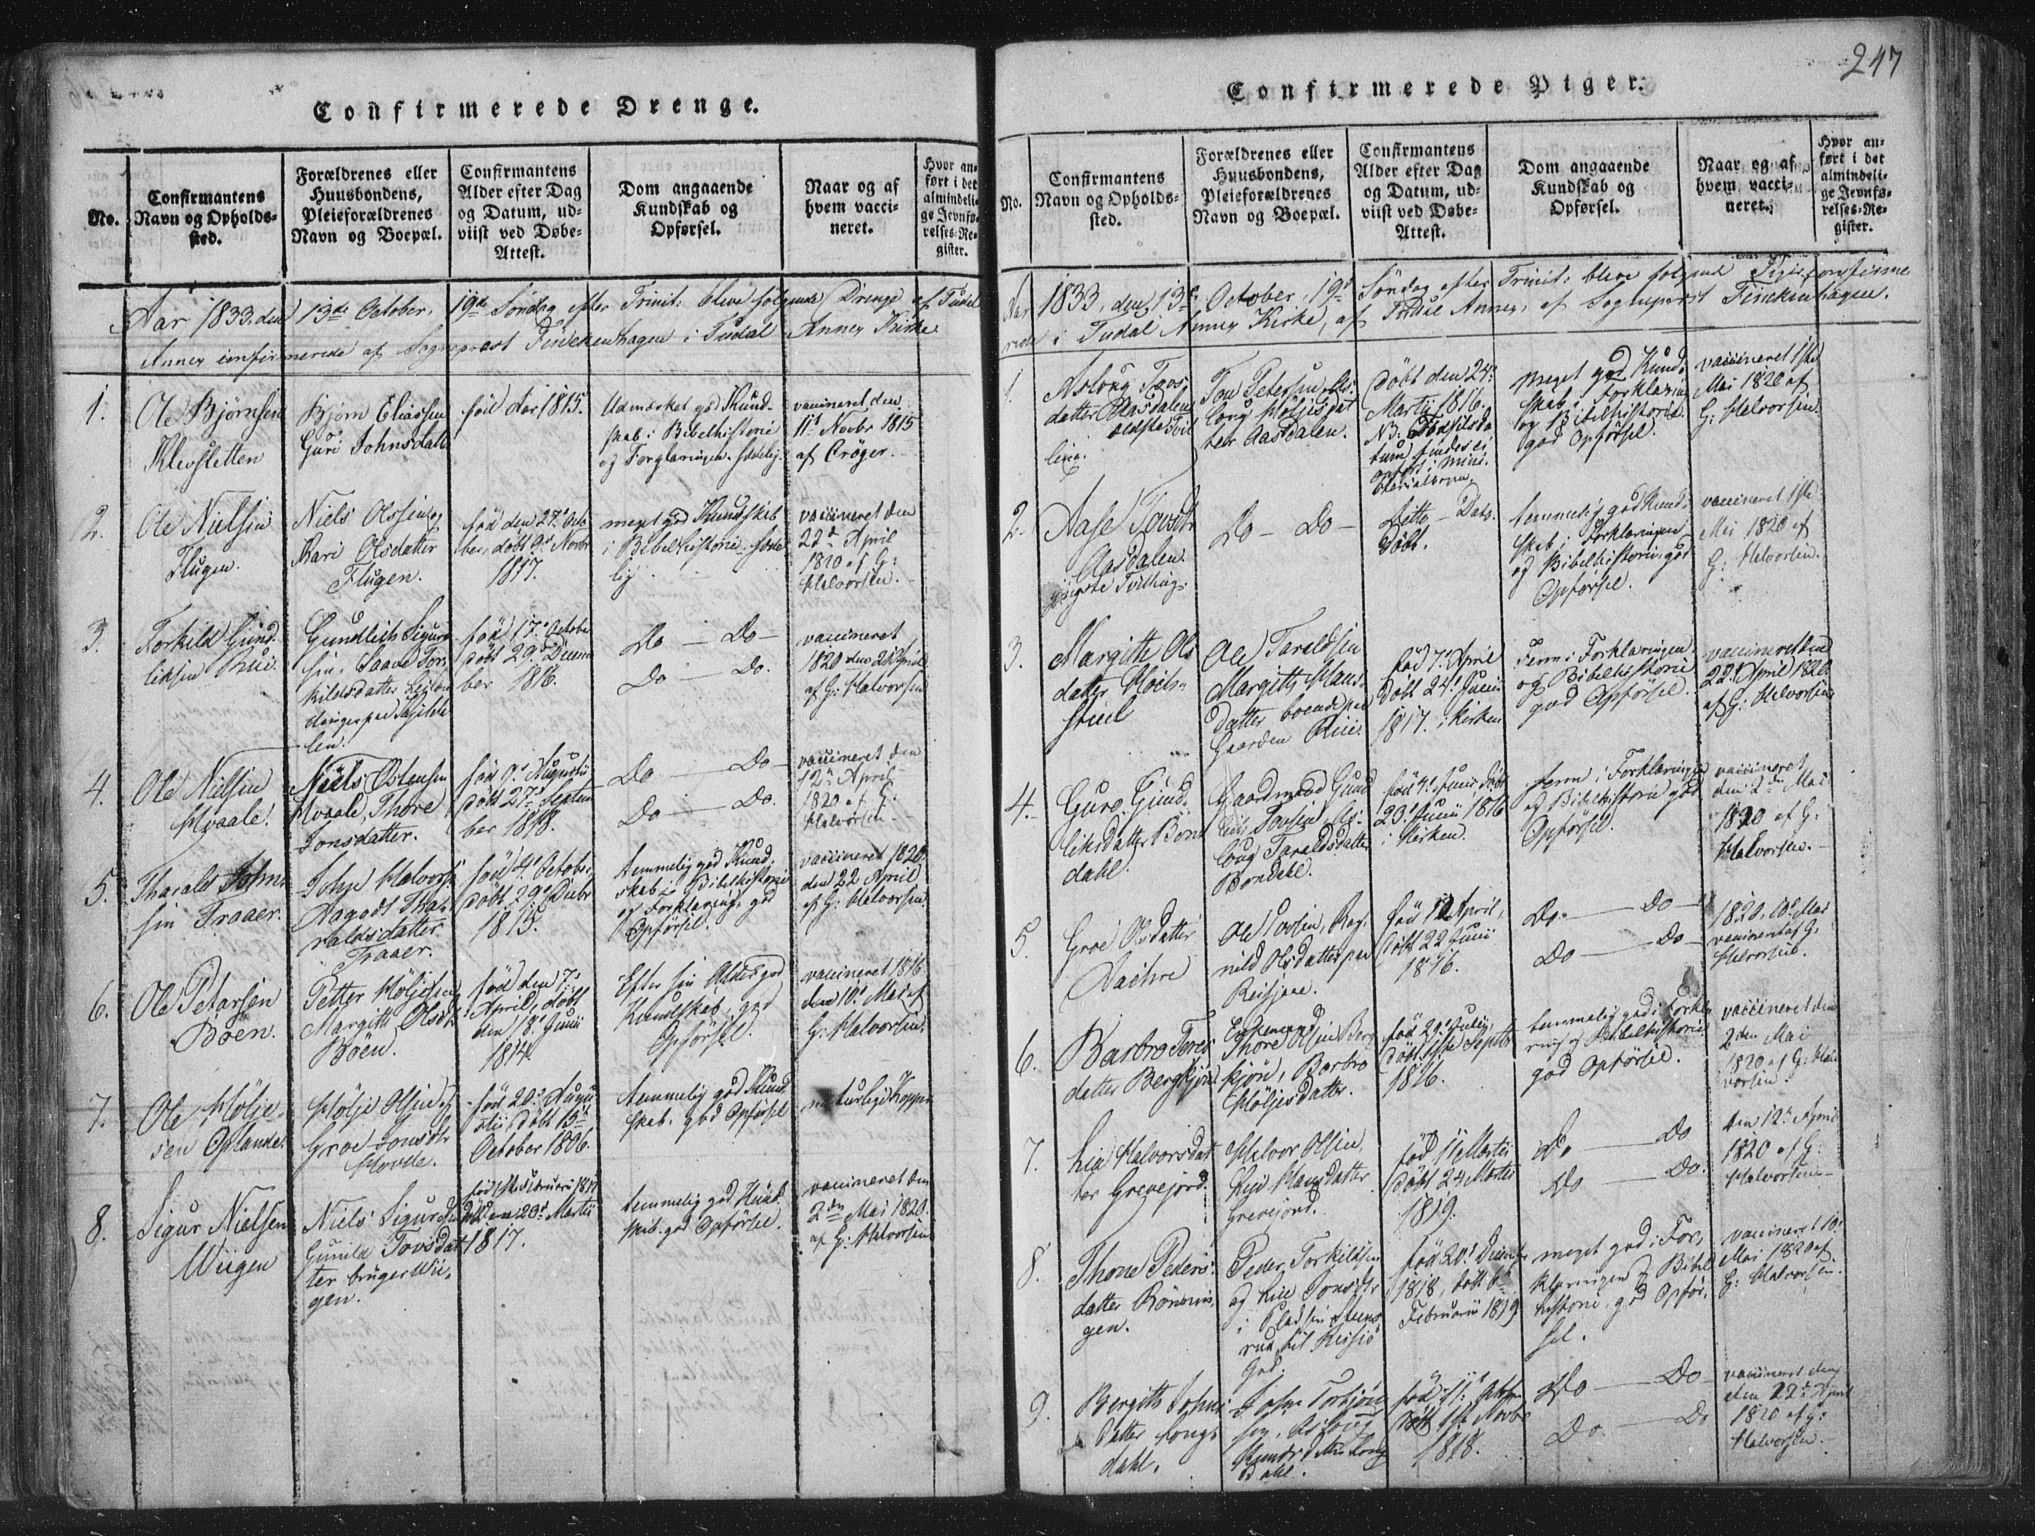 247
Confirmerede Drenge.
No.
Confirmantens
Navn og Opholds-
sted.
Forældrenes eller
Huusbondens,
Pleieforældrenes
Navn og Boepæl.
Confirmantens
Alder efter Dag
og Datum, ud-
viist ved Døbe-
Attest.
Dom angaaende
Kundskab og
Opførsel.
Naar og af
hvem vacci-
neret.
Hvor an-
ført i det
almindeli-
ge Jevnfø-
relses-Re-
gister.
Aar 1833. den 13de October, 19de Søndag efter Trinit: bleve følgende Drenge af Tudal
Annex confirmerede af Sognepræst Finckenhagen i Tudal Annex Kirke
1.
Ole Bjørnsen
Klevsletten
Bjørn Eliassen
Guri Johnsdatt
fød Aar 1815.
Udmærket god Kund-
skab i Bibelhistorie
og Forklaringen. sædelig.
vaccineret den
11t Novbr 1815
af Crøger.
2.
Ole Nielsen
Flugen.
Niels Olssen og
Kari Olsdatter
Flugen.
fød den 27de Octo
ber, døbt 9de Novbr
1817.
meget god Kundskab
i Bibelhistorie. sæde
lig.
vaccineret den
22de April
1820 af G:
Halvorsen.
3.
Torkild Gund-
liksen Rue.
Gundlich Sigurd
sen, Saave Tor-
kildsdatter
fød 17de October
døbt 29de Decem
ber 1816.
Do — Do —
Do — Do.
vaccineret
1820 den 28 April
af G: Halvorsen
4.
Ole Nielsen
Hvaale.
Niels Østensen
Hvaale, Thore
Jonsdatter.
fød 9de Augustii
døbt 27de Septem
ber 1818.
Do — Do —
Do — Do.
vaccineret den
12te April
1820 af G:
Halvorsen
5.
Tharald Johns
sen Traaer.
John Halvors
Aagodt Tha-
raldsdatter
Traaer.
fød 4de Octobr,
døbt 29de Decbr
1815.
temmelig god Kund-
skab i Bibelhistorie
og Forklaring, god
Opførsel.
vaccineret 1820
den 22 April
af G: Halvorsen.
6.
Ole Petersen
Bøen.
Petter Høljesen
Margith Olsdt
Bøen.
fød den 7de
April, døbt
den 18de Junii
1814.
Efter sin Alder god
Kundskab, god
Opførsel.
vaccineret 1816
den 10de Mai af
G: Halvorsen.
7.
Ole Hølje-
sen Oplandet.
Hølje Olsen og
Groe Jonsdtr
Hovde.
fød 20de Augu
stii døbt 15de
October 1806.
temmelig god Kund
skab. god Opførsel
naturlige Kopper
8.
Sigur Nielsen
Wiigen
Niels Sigurdsen
Gunild Tovsdat-
ter bruger Wii-
gen.
fød 1ste Februarii 1817
døbt den 20de Martii
1817.
temmelig god Kund
skab. god Opførsel.
vaccineret den
2den Mai 1820.
af G: Halvorsen
Confirmerede Piger.
No.
Confirmantens
Navn og Opholds-
sted.
Forældrenes eller
Huusbondens,
Pleieforældrenes
Navn og Boepæl.
Confirmantens
Alder efter Dag
og Datum, ud-
viist ved Døbe-
Attest.
Dom angaaende
Kundskab og
Opførsel.
Naar og af
hvem vacci-
neret.
Hvor an-
ført i det
almindeli-
ge Jevnfø-
relses-Re-
gister.
Aar 1833, den 13de October, 19de Søndag efter Trinit: bleve følgende Piger confirme
rede i Tudal Annex Kirke, af Tudal Annex, af Sognepræst Finckenhagen.
1.
Aslaug Tovs-
datter Aasdalen
ældste Tvil
ling.
Tov Petersen, As-
loug Høljesdat
ter Aasdalen.
døbt den 24de
Martij 1816.
NB. Fødselsda
tum findes ei
anført i Mini-
sterialbogen.
Meget god Kund-
skab i Forklaring
og Bibelhistorie.
god Opførsel.
vaccineret 1ste
Mai 1820 af
G: Halvorsen.
2.
Aase Tovsdtr
Aasdalen.
yngste Tvilling.
Do — Do —
Ditto — Dato
døbt.
temmelig god Kund-
skab i Forklaringen
og Bibelhistorie, god
Opførsel.
vaccineret 1ste
Mai 1820 af
G: Halvorsen.
3.
Margith Ols
datter
Ole Taraldsen
Margith Hans-
datter boende paa
Gaarden Rue.
fød 7de April
døbt 24de Junii
1817. i Kirken
Ferm i Forklaringen
og Bibelhistorie
god Opførsel.
vaccineret den
22de April 1820
af G: Halvorsen
4.
Guro Gund-
liksdatter Bøn
dahl.
Gaardmand Gund
lik Tovsen, As-
loug Taraldsdatter
Bøndahl.
fød 4de Junii døbt
23de Junii 1816
i Kirken.
ferm i Forklaringen
og Bibelhistorie god
Opførsel.
vaccineret
den 2den Mai
1820 af G:
Halvorsen.
5.
Groe Olsdatter
Ole Tovsen, Rag-
nild Olsdatter paa
Reisjaae.
fød 12 April,
døbt 22 Junii
1816.
Do. — Do —
Do — Do —
1820. 10de Mai
vaccineret af G.
Halvorsen.
6.
Barbro Tores
datter Bergkjøn
Enkemand
Thore Olsen Berg
kjøn, Barbro
Høljesdatter.
fød 29de Julij,
døbt 1ste Septb
1816.
temmelig god i Forkla
ring og Bibelhistorie
god Opførsel.
vaccineret den
2den Mai
1820 af G: Hal
vorsen.
7.
Liv Halvorsdat
ter Grevejord.
Halvor Olsen,
Liv Hansdatter
Grevejord.
fød 11 Martii
døbt 24 Martii
1819.
Do — Do
Do — Do.
den 12te April
1820 af G:
Halvorsen
8.
Thone Peders-
datter Rønnin-
gen.
Peder Torkildsen
og Liv Jonsdtr
i Pladsen
rud, til Reisjø
God.
fød 20de Decembr
1818, døbt
Februarii 1819
meget god i For-
klaringen og Bibel
historie, god Opfør-
sel.
vaccineret 10de
Mai 1820 af
G: Halvorsen.
9.
Bergith Johns
datter Longe
dahl.
John Torbjørn
sen, Asloug
Knudsdatter Long
dahl.
fød 11te Octbr
døbt 1ste Novbr
1818.
Do — Do
Do. — Do
vaccineret den
den 22de April
1820 af G:
Halvorsen.